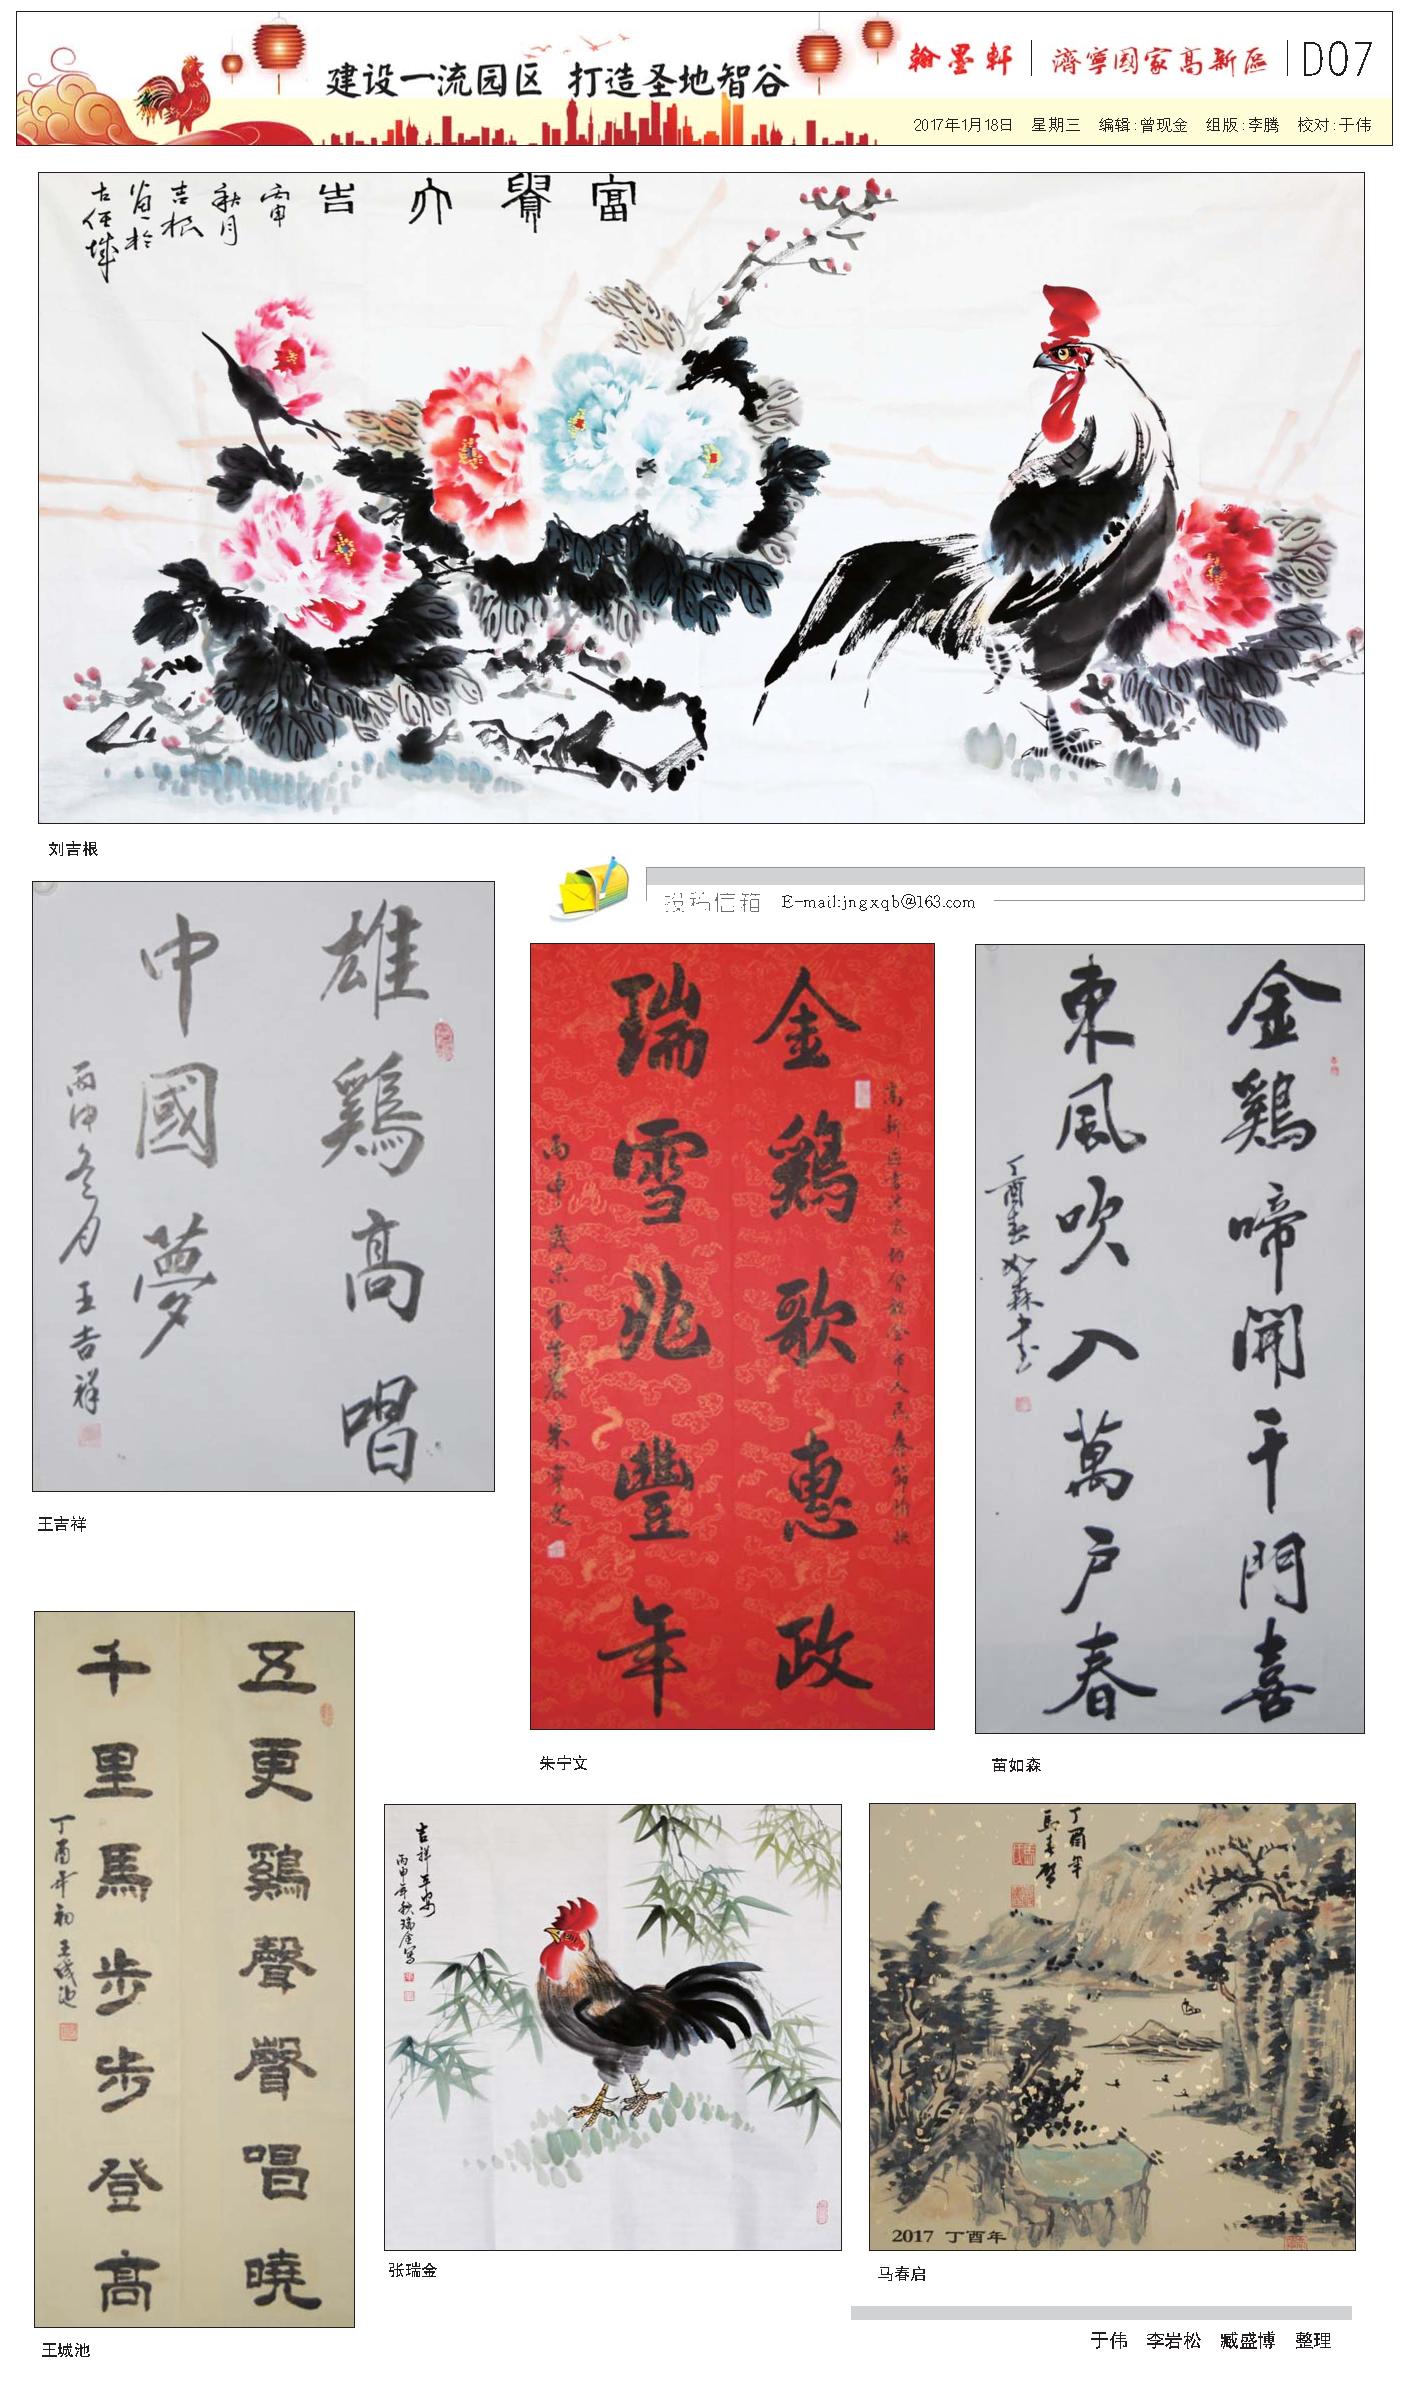 建设一流园区 打造圣地智谷
翰墨轩
濟寧国家高新區
D07
2017年1月18日 星期三 编辑:曾现金 组版:李腾 校对:于伟
富贵亦吉
丙申
秋月
吉根
古任城
刘吉根
投稿信箱 E-mail:jngxqb@163.com
雄鷄高唱
中國夢
丙申冬月王吉祥
王吉祥
金鷄歌惠政
瑞雪兆豐年
朱宁文
金鷄啼開千門喜
東風吹入萬户春
丁酉春如森书
苗如森
五更鷄聲聲唱曉
千里馬步步登高
丁酉年初王城池
王城池
吉祥平安
丙申年秋瑞金写
张瑞金
丁酉年
馬春啓
2017 丁酉年
马春启
于伟 李岩松 臧盛博 整理